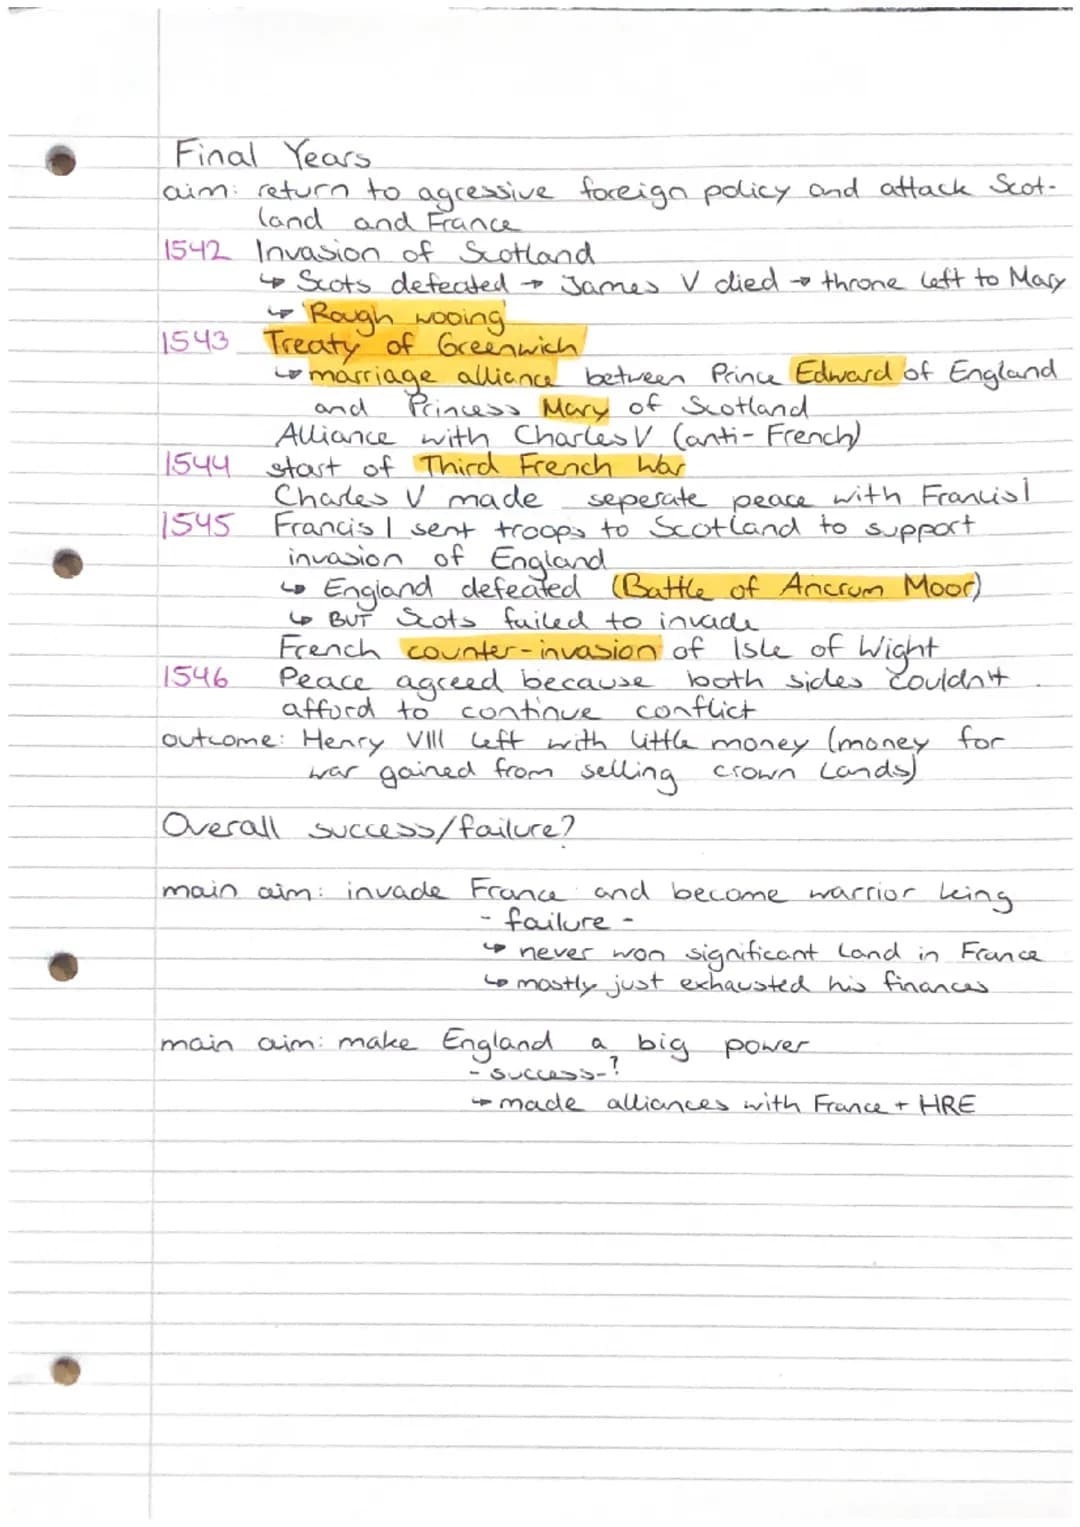 Final Years
aim: return to agressive foreign policy and attack Scot-
land and France
1542 Invasion of Scotland
↳ Scots defeated → James V died → throne left to Mary
↳ 'Rough wooing'
1543 Treaty of Greenwich
↳ marriage alliance between Prince Edward of England
and Princess Mary of Scotland
Alliance with Charles V (anti-French)
1544 start of Third French War
Charles V made seperate peace with Francis I
1545 Francis I sent troops to Scotland to support
invasion of England
↳ England defeated (Battle of Ancrum Moor)
↳ BUT Scots failed to invade
French counter-invasion of Isle of Wight
1546 Peace agreed because both sides couldn't
afford to continue conflict
outcome: Henry VIII left with little money (money for
war gained from selling crown lands)
Overall success/failure?
main aim: invade France and become warrior king
- failure -
↳ never won significant land in France
↳ mostly just exhausted his finances
main aim: make England a big power
- success-?
↳ made alliances with France + HRE